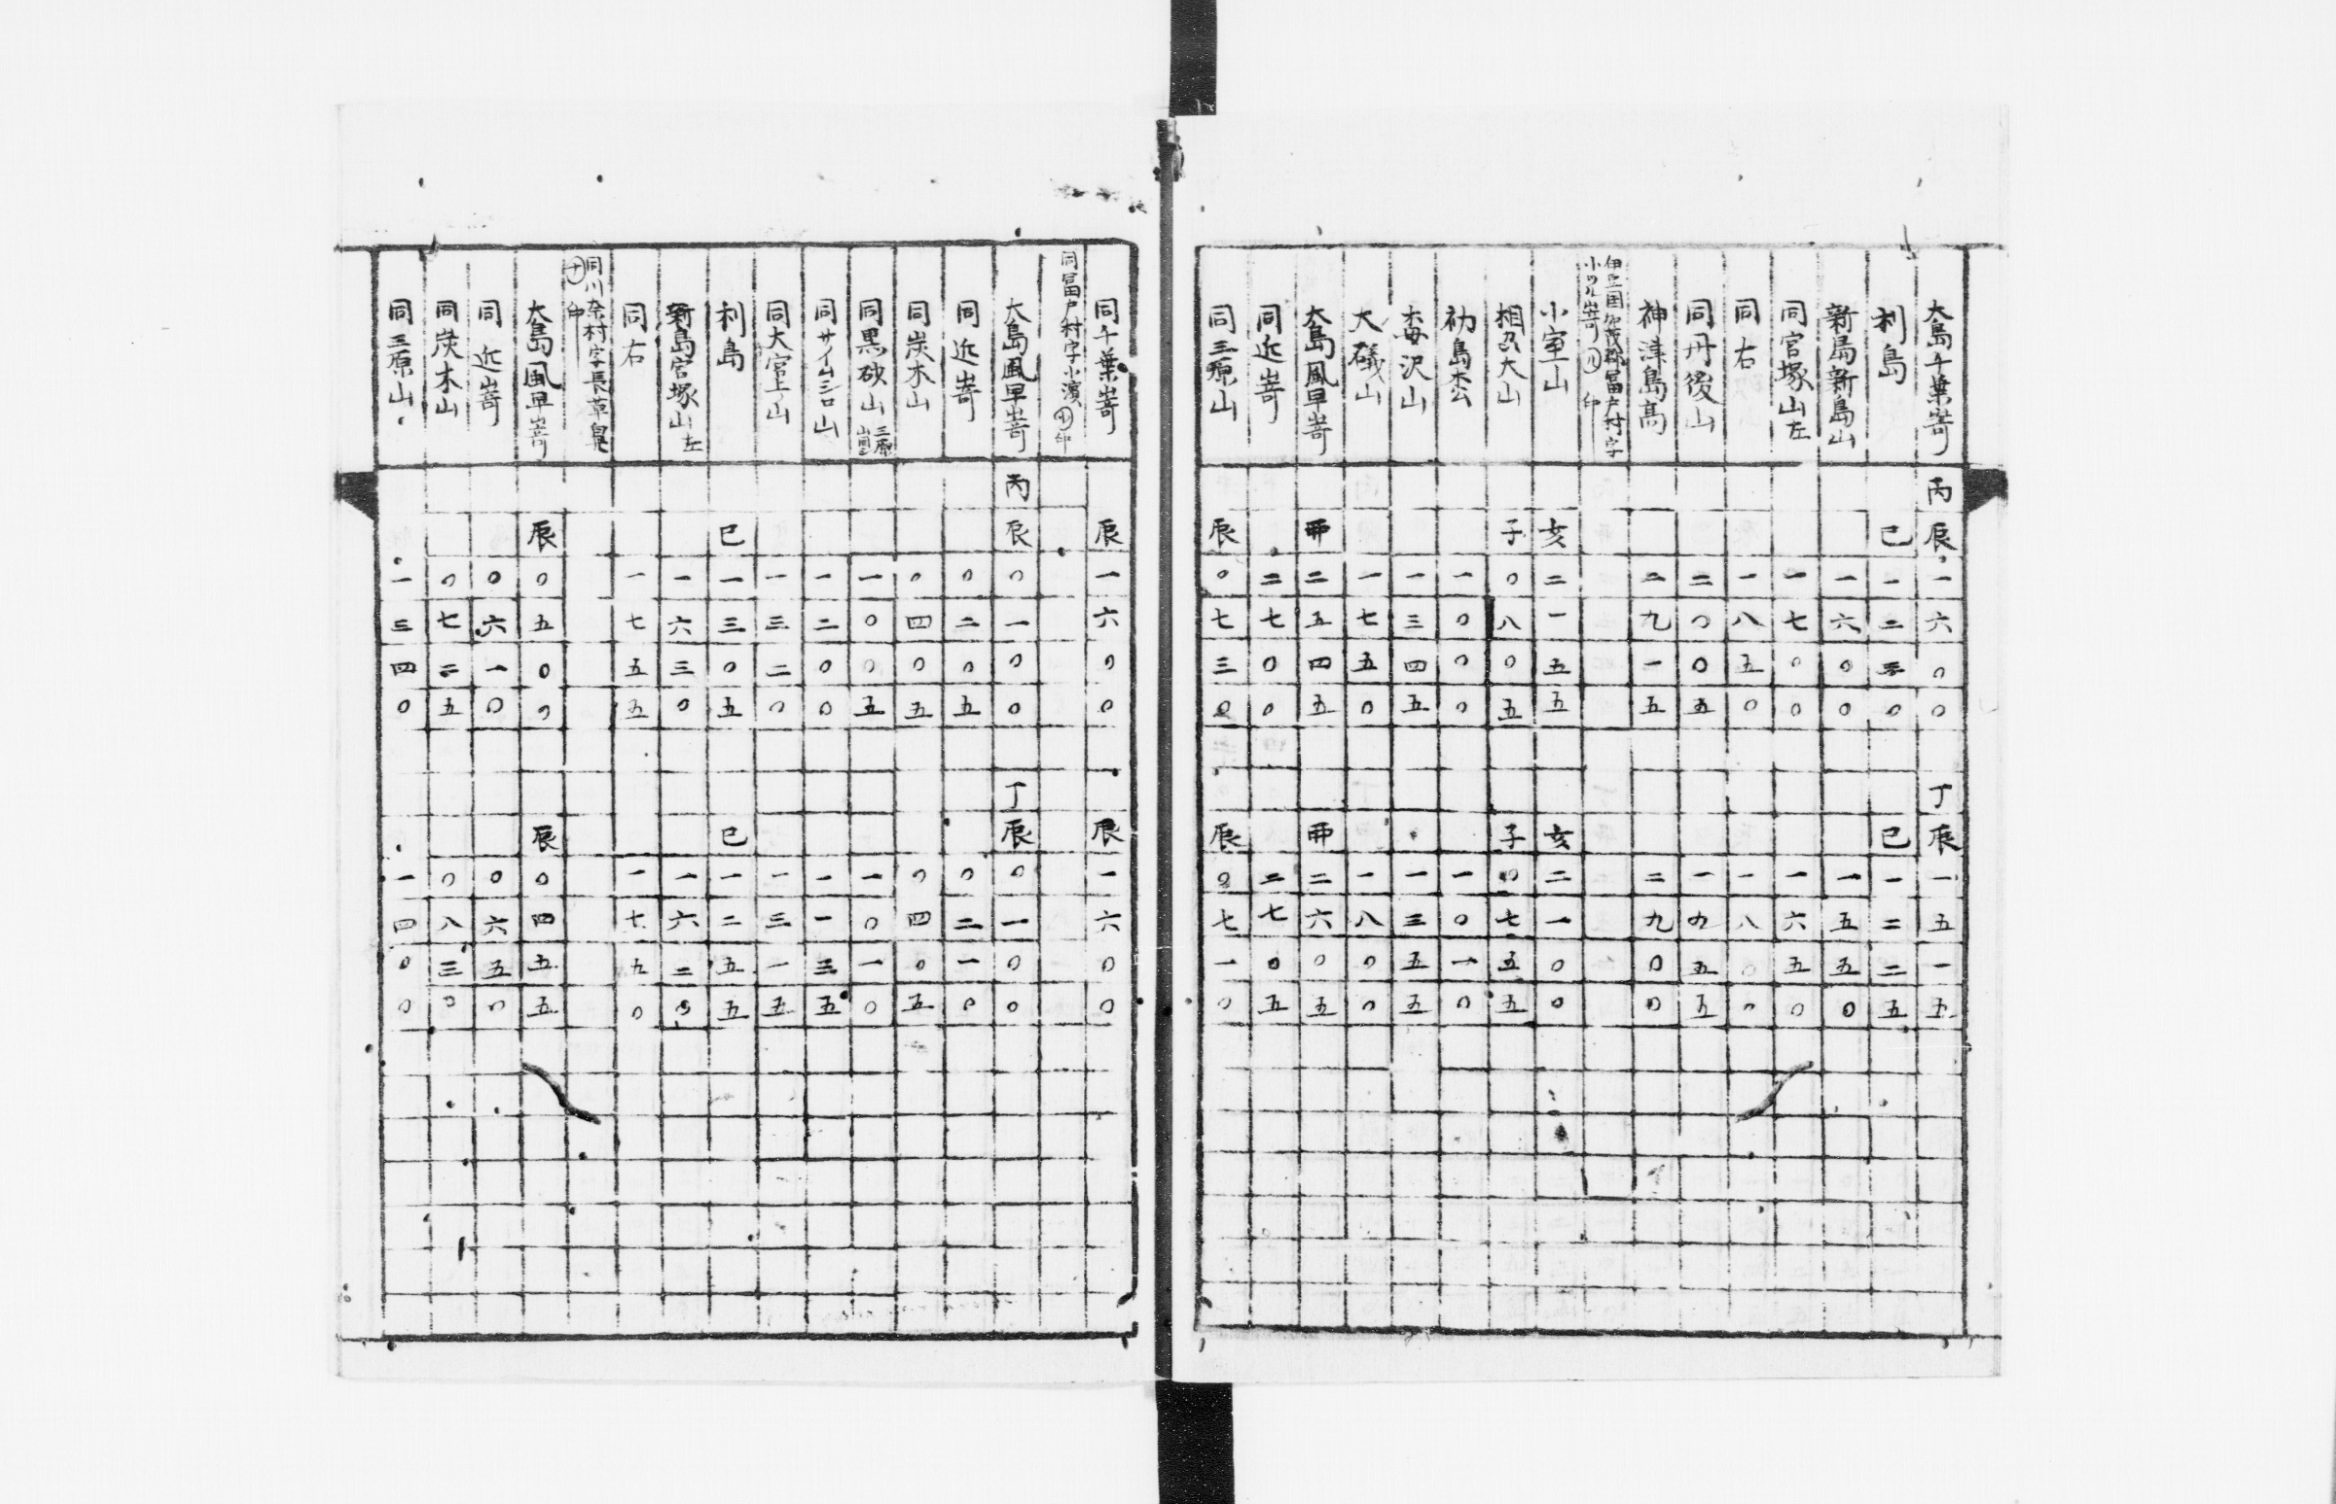 大島千葉嵜 丙辰一六〇〇 丁辰一五一五
利島 巳一二三〇 巳一二二五
新島新島山 一六〇〇 一五五〇
同宮塚山左 一七〇〇 一六五〇
同右 一八五〇 一八〇〇
同丹後山 二〇〇五 一九五五
神津島高 二九一五 二九〇〇
伊豆国加茂郡冨戸村字
小ツル嵜 印
小室山 亥二一五五 亥二一〇〇
相刕大山 子〇八〇五 子〇七五五
初島木公 一〇〇〇 一〇一〇
毒沢山 一三四五 一三五五
大礒山 一七五〇 一八〇〇
大島風早嵜 丑二五四五 丑二六〇五
同近嵜 二七〇〇 二七〇五
同三原山 辰〇七三〇 辰〇七一〇
同千葉嵜 辰一六〇〇 辰一六〇〇
同冨戸村字小濱 印
大島風早嵜 丙辰〇一〇〇 丁辰〇一〇〇
同近嵜 〇二〇五 〇二一〇
同炭木山 〇四〇五 〇四〇五
同黒砂山 一〇〇五 一〇一〇
同サイムシロ山 一二〇〇 一一三五
同大宮上ノ山 一三二〇 一三一五
利島 巳一三〇五 巳一二五五
新島宮塚山左 一六三〇 一六二〇
同右 一七五五 一七九〇
同川奈村字長草皇
㊉印
大島風早嵜 辰〇五〇〇 辰〇四五五
同近嵜 〇六一〇 〇六五〇
同炭木山 〇七二五 〇八三〇
同三原山 一三四〇 一四〇〇